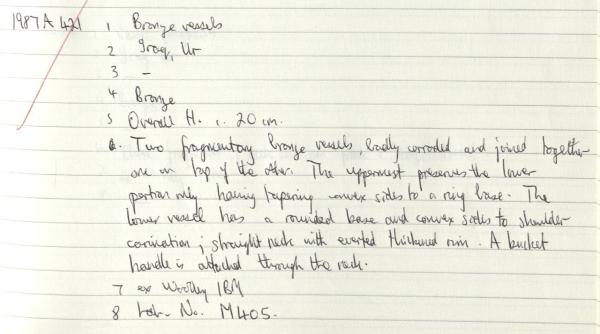 1987A 421 1 Bronze vessels
2 Iraq, Ur
3 -
4 Bronze
5 Overall H. c. 20 cm.
6. Two fragmentary bronze vessels, badly corroded and joined together
one on top of the other. The uppermost preserves the lower
portion only having tapering convex sides to a ring base. The
lower vessel has a rounded base and convex sides to shoulder
carination; straight neck with everted thickened rim. A bucket
handle is attached through the neck.
7 ex Woolley IBM
8 No. M405.